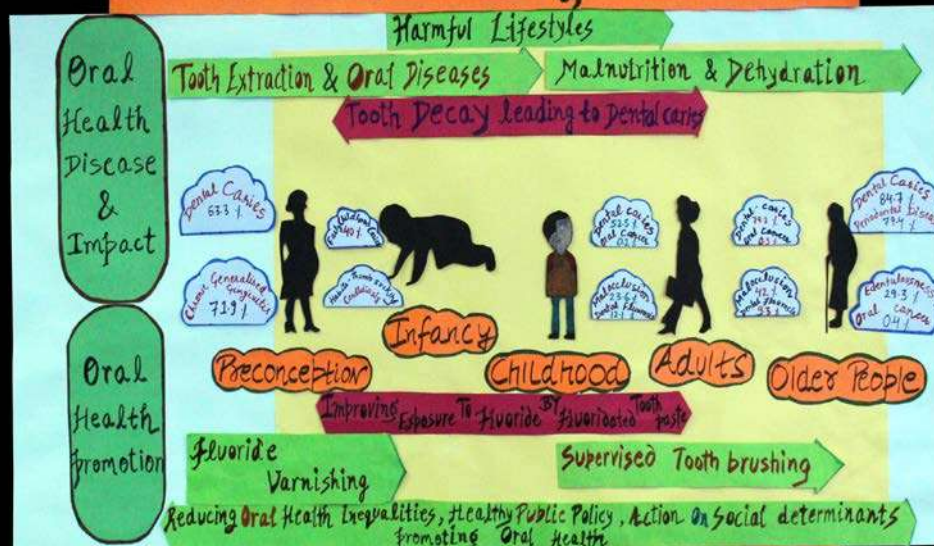 Harmful Lifestyles
Oral
Health
Disease
&
Impact
Tooth Extraction & Oral Diseases
Malnutrition & Dehydration
Tooth Decay leading to Dental caries
Dental Caries
63.3 %
Chronic Generalised
Gingivitis
71.9 %
Early Childhood Caries
Candidiasis
Dental caries
52.5 %
Oral Cancer
Malocclusion
23.6 %
Dental Fluorosis
Dental caries
Oral Cancer
Malocclusion
Dental Fluorosis
Dental Caries
84.7 %
Periodontal Disease
79.4 %
Edentulousness
29.3 %
Oral cancer
0.4 %
Preconception
Infancy
Childhood
Adults
Older People
Oral
Health
promotion
Improving Exposure To Fluoride By Fluoridated Tooth paste
Fluoride
Varnishing
Supervised Tooth brushing
Reducing Oral Health Inequalities, Healthy Public Policy, Action On Social determinants
promoting Oral Health